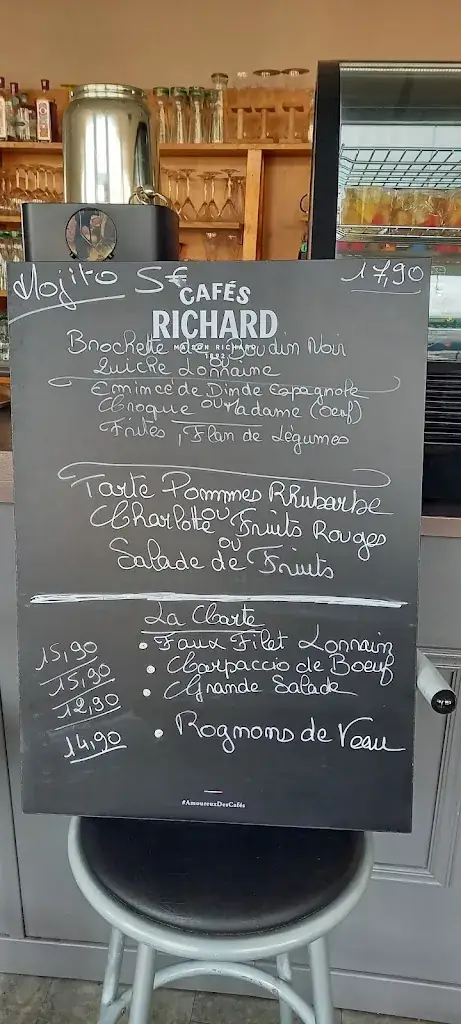 Mojito 5€
17,90
CAFÉS
RICHARD
MAISON RICHARD
1892
Brochette de Boudin Noir
ou
Quiche Lorraine
Emincé de Dinde Espagnole
ou
Croque Madame (Oeuf)
Frites, Flan de Légumes
Tarte Pommes Rhubarbe
ou
Charlotte Fruits Rouges
ou
Salade de Fruits
La Carte
15,90 • Faux Filet Lorrain
15,90 • Carpaccio de Boeuf
12,90 • Grande Salade
14,90 • Rognons de Veau
#AmoureuxDesCafés